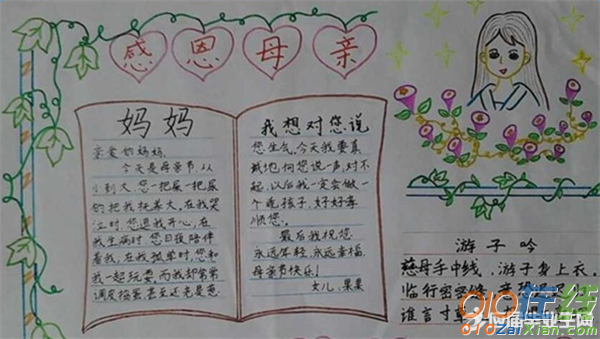 感恩母亲
妈妈
亲爱的妈妈,
今天是母亲节,从
小到大,您一把屎一把尿
的把我抚养大,在我哭
泣时,您逗我开心,在
我生病时,您日夜陪伴
着我,在我孤单时,您和
我一起玩耍,而我却常常
调皮捣蛋,甚至还老是惹
我想对您说
您生气,今天我要真
诚地向您说一声,对不
起,以后我一定会做一
个乖孩子,好好孝
顺您。
最后我祝您
永远年轻,永远幸福,
母亲节快乐!
女儿:果果
游子吟
慈母手中线,游子身上衣。
临行密密缝,意恐
谁言寸草
910在线
910zaixian.com